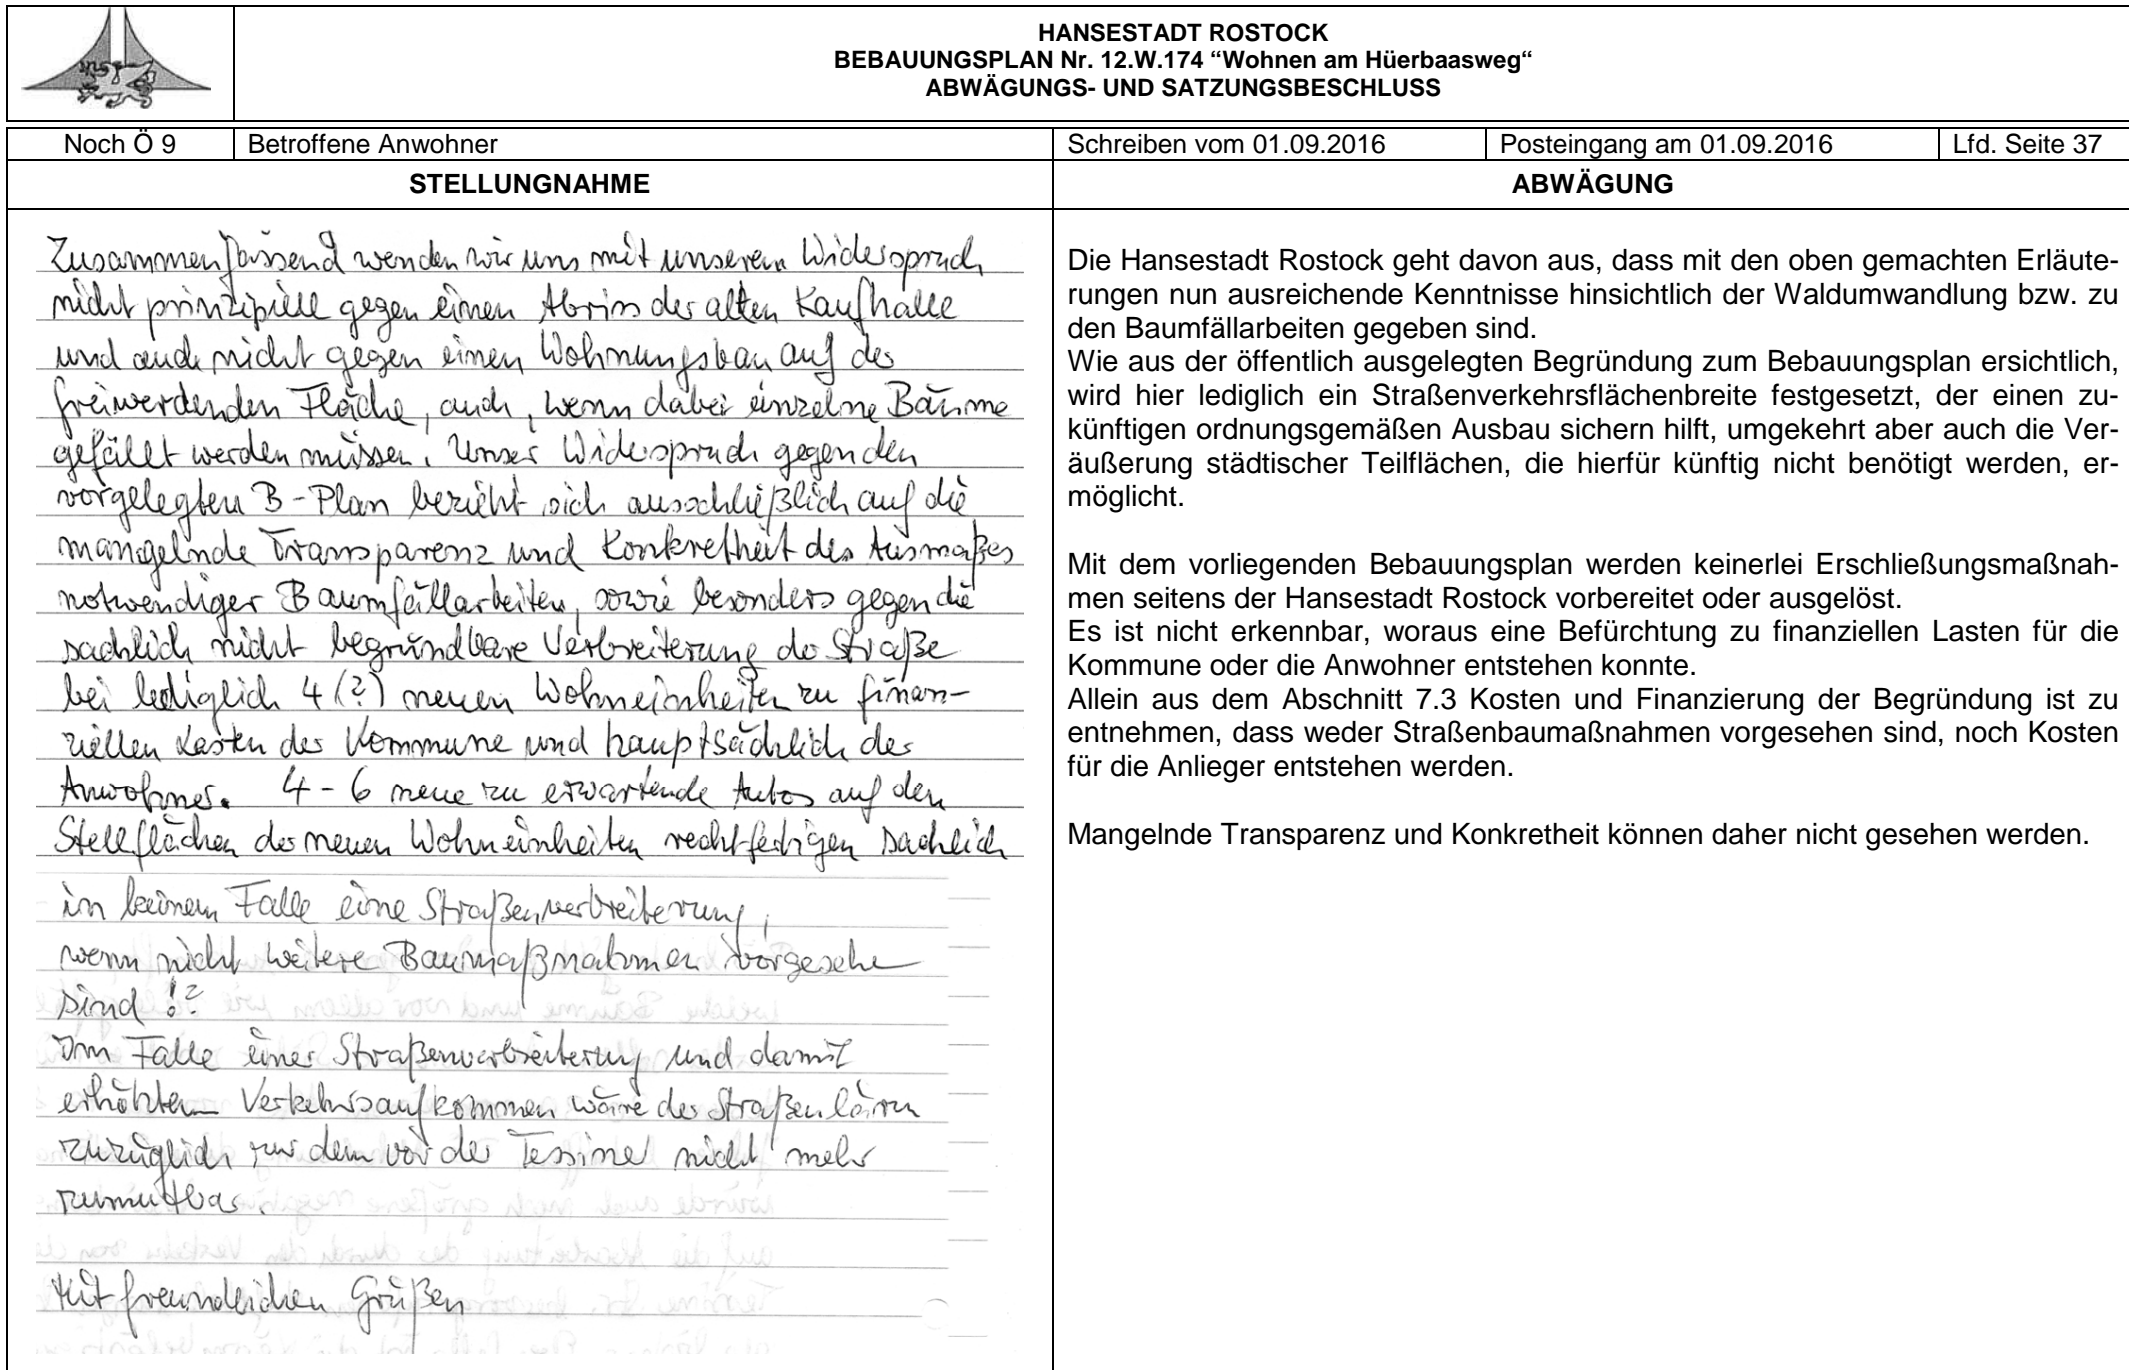 HANSESTADT ROSTOCK
BEBAUUNGSPLAN Nr. 12.W.174 “Wohnen am Hüerbaasweg“
ABWÄGUNGS- UND SATZUNGSBESCHLUSS
Noch Ö 9 Betroffene Anwohner Schreiben vom 01.09.2016 Posteingang am 01.09.2016 Lfd. Seite 37
STELLUNGNAHME ABWÄGUNG
Zusammenfassend wenden wir uns mit unserem Widerspruch
nicht prinzipiell gegen einen Abriss der alten Kaufhalle
und auch nicht gegen einen Wohnungsbau auf der
freiwerdenden Fläche, auch, wenn dabei einzelne Bäume
gefällt werden müssen. Unser Widerspruch gegen den
vorgelegten B-Plan bezieht sich ausschließlich auf die
mangelnde Transparenz und Konkretheit des Ausmaßes
notwendiger Baumfällarbeiten, sowie besonders gegen die
sachlich nicht begründbare Verbreiterung der Straße
bei lediglich 4 (?) neuen Wohneinheiten zu finan-
ziellen Lasten der Kommune und hauptsächlich der
Anwohner. 4 - 6 neue zu erwartende Autos auf den
Stellflächen der neuen Wohneinheiten rechtfertigen sachlich
in keinem Falle eine Straßenverbreiterung,
wenn nicht weitere Baumaßnahmen vorgesehe
sind !?
Im Falle einer Straßenverbreiterung und damit
erhöhtem Verkehrsaufkommen wäre der Straßenlärm
zuzüglich zu dem von der Tessiner nicht mehr
zumutbar.
Mit freundlichen Grüßen
Die Hansestadt Rostock geht davon aus, dass mit den oben gemachten Erläute-
rungen nun ausreichende Kenntnisse hinsichtlich der Waldumwandlung bzw. zu
den Baumfällarbeiten gegeben sind.
Wie aus der öffentlich ausgelegten Begründung zum Bebauungsplan ersichtlich,
wird hier lediglich ein Straßenverkehrsflächenbreite festgesetzt, der einen zu-
künftigen ordnungsgemäßen Ausbau sichern hilft, umgekehrt aber auch die Ver-
äußerung städtischer Teilflächen, die hierfür künftig nicht benötigt werden, er-
möglicht.
Mit dem vorliegenden Bebauungsplan werden keinerlei Erschließungsmaßnah-
men seitens der Hansestadt Rostock vorbereitet oder ausgelöst.
Es ist nicht erkennbar, woraus eine Befürchtung zu finanziellen Lasten für die
Kommune oder die Anwohner entstehen konnte.
Allein aus dem Abschnitt 7.3 Kosten und Finanzierung der Begründung ist zu
entnehmen, dass weder Straßenbaumaßnahmen vorgesehen sind, noch Kosten
für die Anlieger entstehen werden.
Mangelnde Transparenz und Konkretheit können daher nicht gesehen werden.